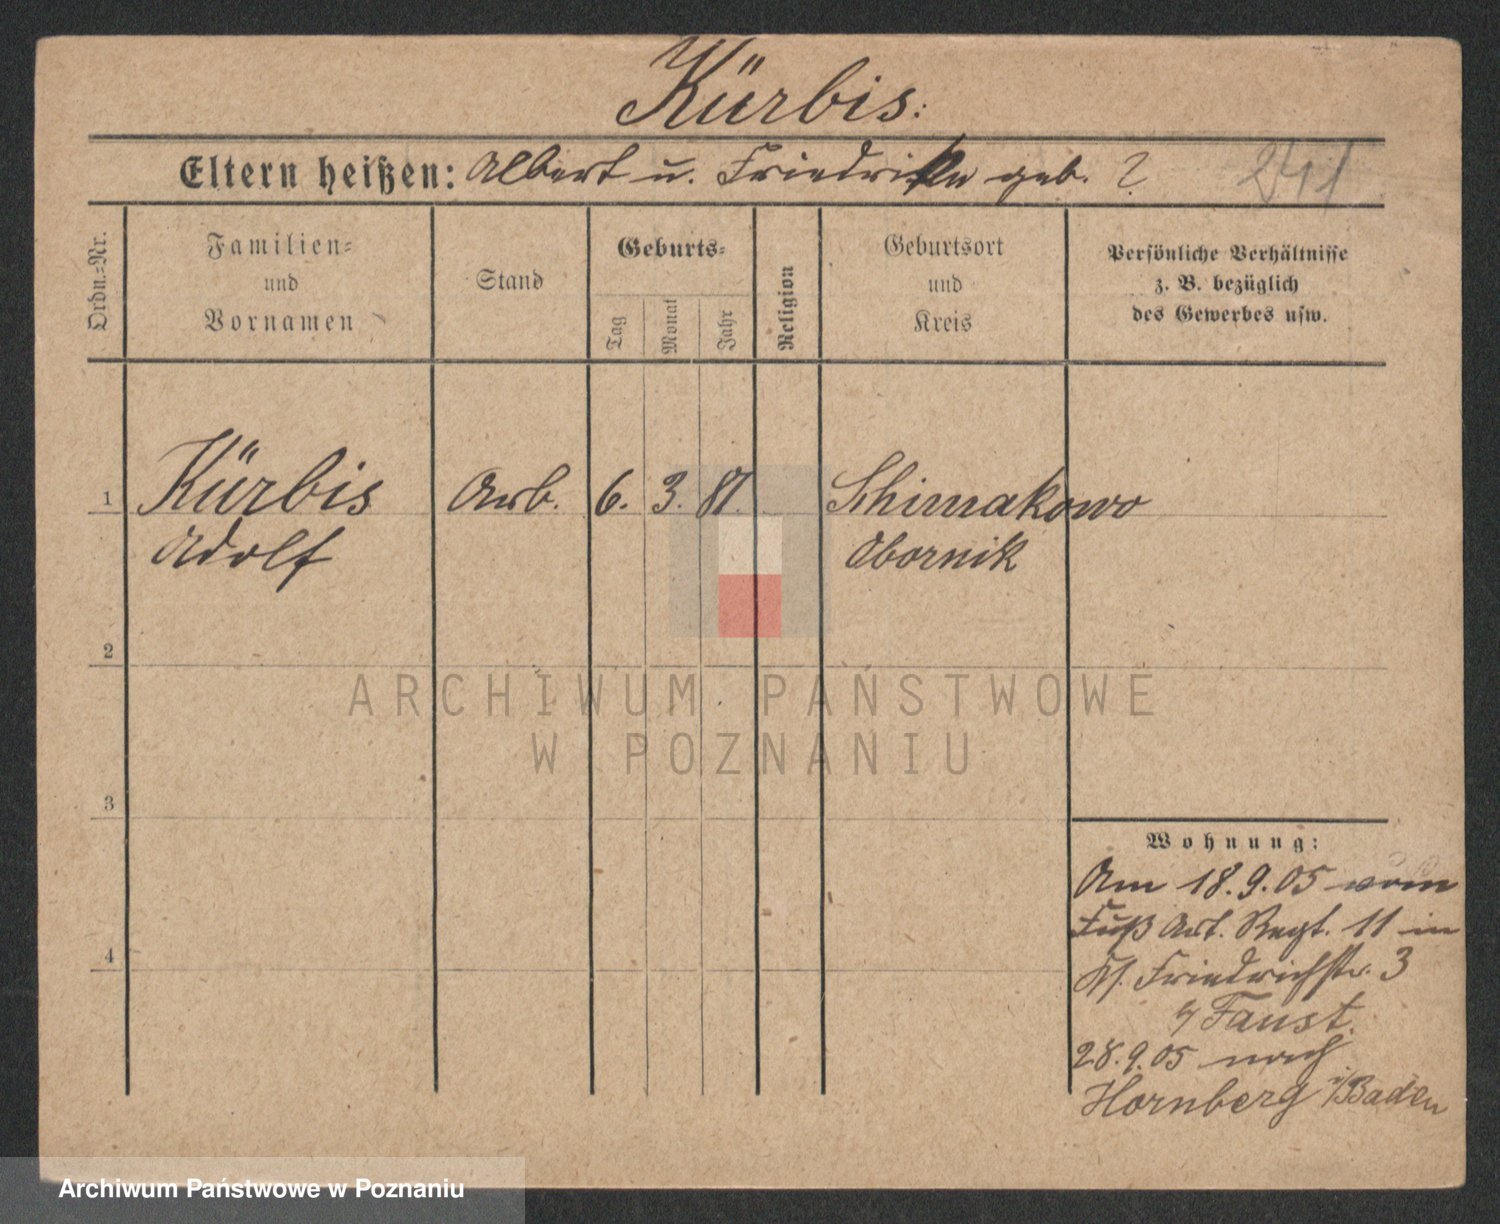 Kürbis:
Eltern heißen: Albert u. Friedrike geb. ?
Ordn.=Nr.
Familien=
und
Vornamen
Stand
Geburts=
Tag
Monat
Jahr
Religion
Geburtsort
und
Kreis
Persönliche Verhältnisse
z. B. bezüglich
des Gewerbes usw.
1 Kürbis Arb. 6. 3. 81. Schimakowo
Adolf Obornik
2
3
4
Wohnung:
Am 18.9.05 vom
Fuß Art. Regt. 11 in
Friedrichstr. 3
Faust.
28.9.05 nach
Hornberg i/Baden
ARCHIWUM PAŃSTWOWE
W POZNANIU
Archiwum Państwowe w Poznaniu